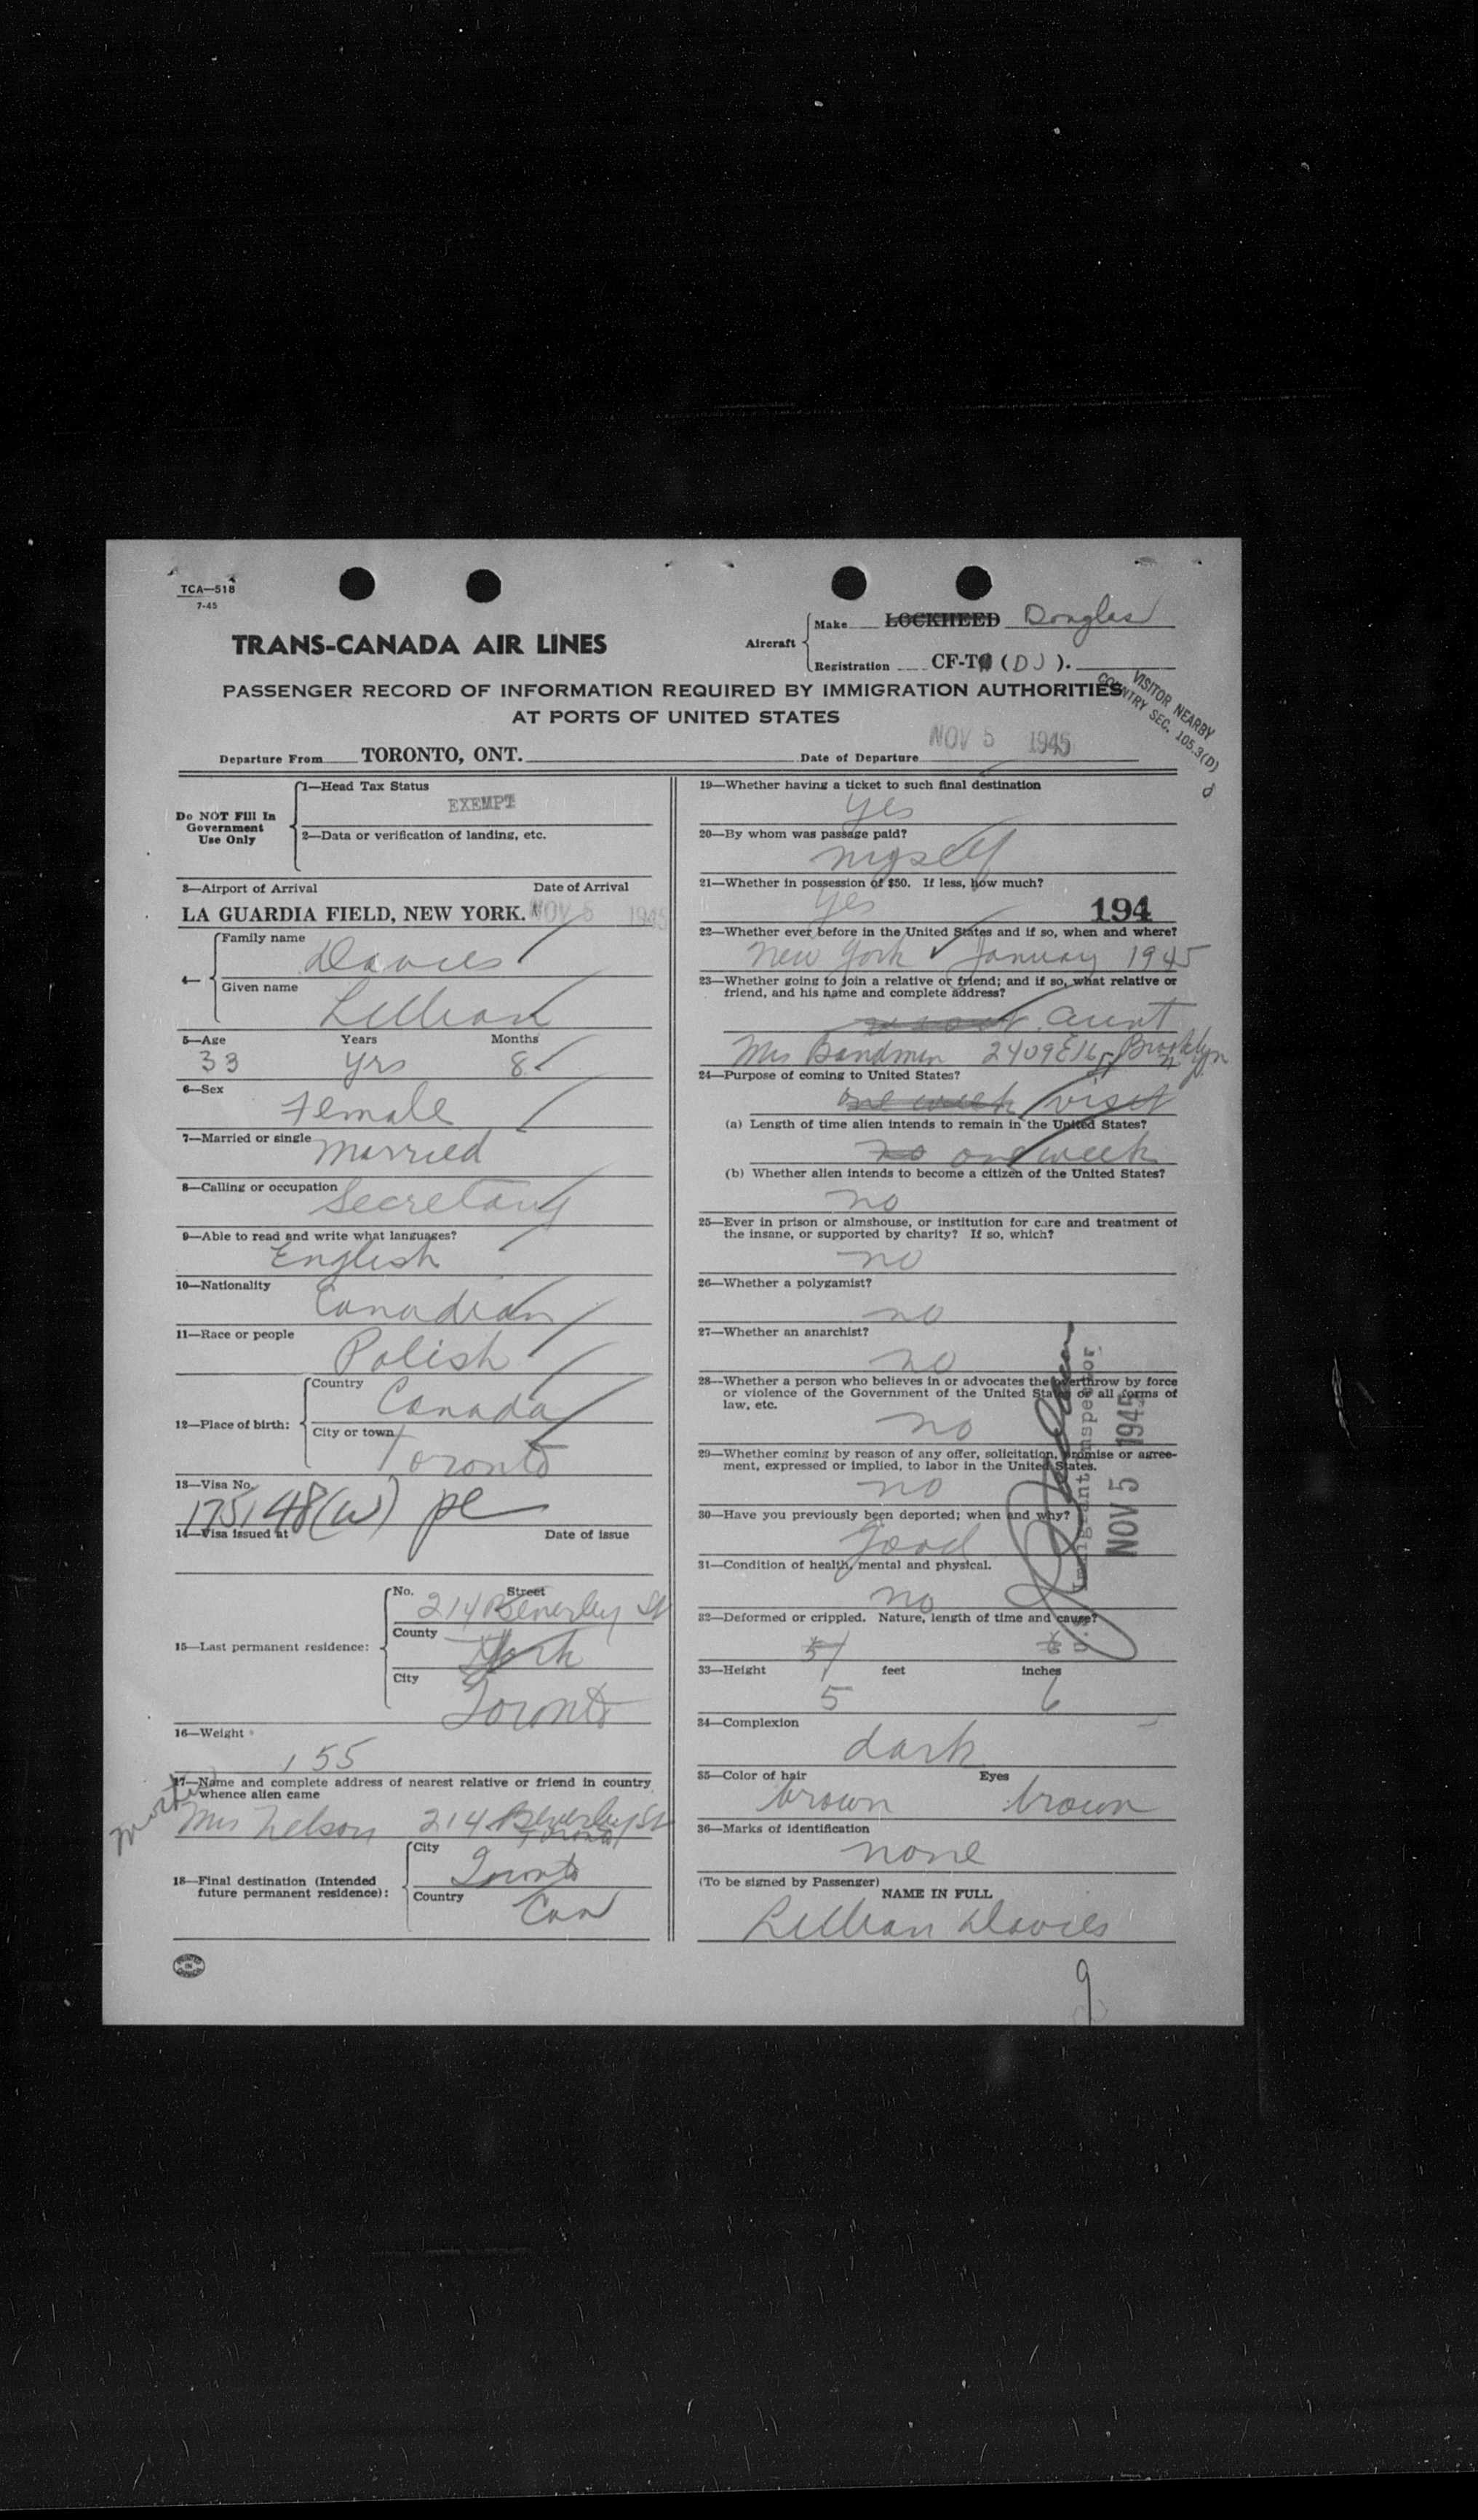 TCA—518
7-45
TRANS-CANADA AIR LINES
Aircraft
Make LOCKHEED Douglas
Registration CF-T (DJ).
PASSENGER RECORD OF INFORMATION REQUIRED BY IMMIGRATION AUTHORITIES
AT PORTS OF UNITED STATES
VISITOR NEARBY
COUNTRY SEC. 105.3(D)
Departure From TORONTO, ONT.
Date of Departure NOV 5 1945
Do NOT Fill In
Government
Use Only
1—Head Tax Status
EXEMPT
2—Data or verification of landing, etc.
3—Airport of Arrival Date of Arrival
LA GUARDIA FIELD, NEW YORK. NOV 5 1945
4—
Family name
Davies
Given name
Lillian
5—Age Years Months
33 yrs 8
6—Sex
Female
7—Married or single Married
8—Calling or occupation Secretary
9—Able to read and write what languages?
English
10—Nationality
Canadian
11—Race or people
Polish
12—Place of birth:
Country
Canada
City or town
Toronto
13—Visa No.
175148(W) pl
14—Visa issued at Date of issue
15—Last permanent residence:
No. Street
214 Beverley St
County York
City
Toronto
16—Weight
155
17—Name and complete address of nearest relative or friend in country
whence alien came
mother
Mrs Nelson 214 Beverley St
Toronto
18—Final destination (Intended
future permanent residence):
City
Toronto
Country
Can
19—Whether having a ticket to such final destination
yes
20—By whom was passage paid?
myself
21—Whether in possession of $50. If less, how much?
yes 194
22—Whether ever before in the United States and if so, when and where?
New York January 1945
23—Whether going to join a relative or friend; and if so, what relative or
friend, and his name and complete address?
Aunt
Mrs Bandmen 2409 E 16 St Brooklyn
24—Purpose of coming to United States?
one week visit
(a) Length of time alien intends to remain in the United States?
no one week
(b) Whether alien intends to become a citizen of the United States?
no
25—Ever in prison or almshouse, or institution for care and treatment of
the insane, or supported by charity? If so, which?
no
26—Whether a polygamist?
no
27—Whether an anarchist?
no
28—Whether a person who believes in or advocates the overthrow by force
or violence of the Government of the United States or all forms of
law, etc.
no
29—Whether coming by reason of any offer, solicitation, promise or agree-
ment, expressed or implied, to labor in the United States.
no
30—Have you previously been deported; when and why?
good
31—Condition of health, mental and physical.
no
32—Deformed or crippled. Nature, length of time and cause?
5 6
33—Height feet inches
5 6
34—Complexion
dark
35—Color of hair Eyes
brown brown
36—Marks of identification
none
(To be signed by Passenger)
NAME IN FULL
Lillian Davies
U.S. Immigrant Inspector
NOV 5 1945
9